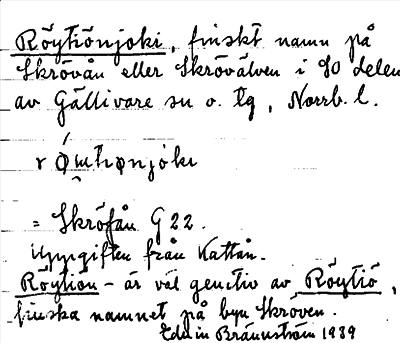 Röytiönjoki, finskt namn på
Skrövån eller Skrövälven i SO delen
av Gällivare sn o. tg, Norrb. l.
= Skröfån G 22.
Uppgiften från Kattån.
Röytiön - är väl genitiv av Röytiö,
finska namnet på byn Skröven.
Edvin Brännström 1939